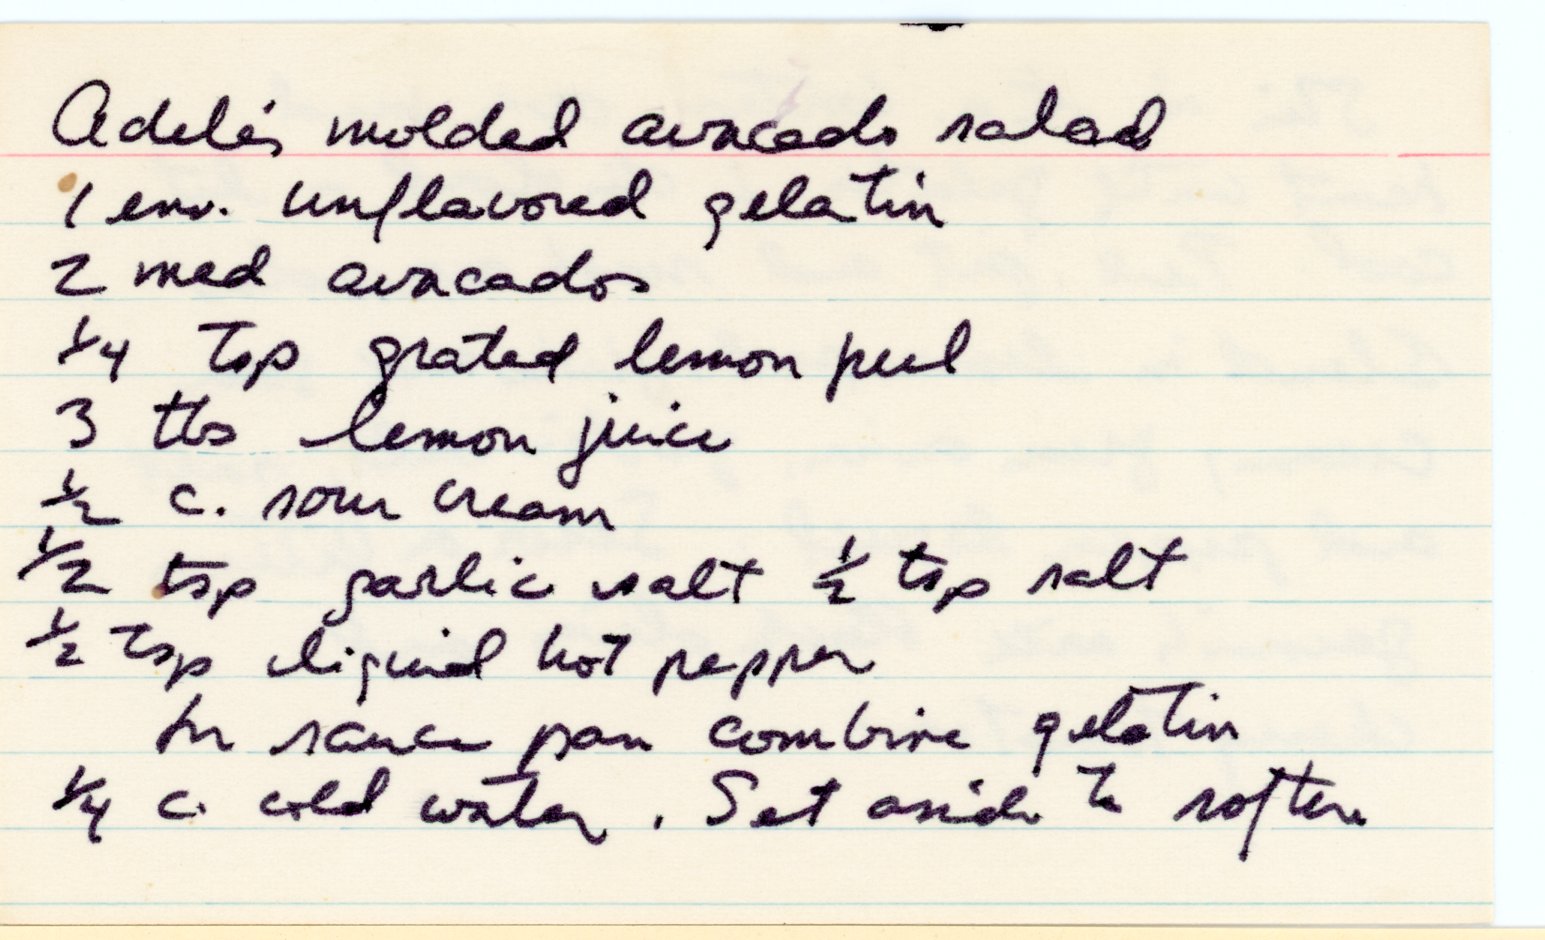 Adele's molded avacado salad
1 env. unflavored gelatin
2 med avacados
1/4 Tsp grated lemon peel
3 tbs lemon juice
1/2 c. sour cream
1/2 tsp garlic salt 1/2 tsp salt
1/2 tsp liquid hot pepper
In sauce pan combine gelatin
1/4 c. cold water. Set aside to soften